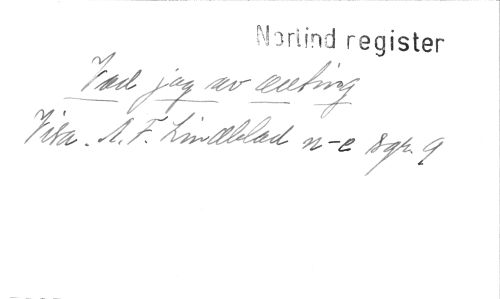 Norlind register
Vad jag av allting
Visa. A. F. Lindblad n-e sgr. 9